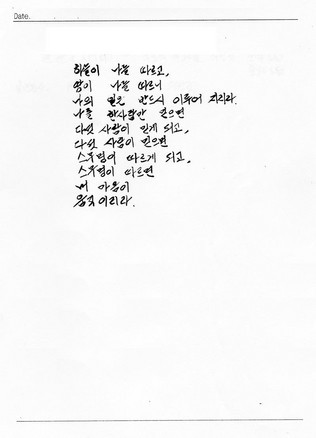 Date.
하늘이 나를 따르고,
땅이 나를 따르니
나의 뜻은 반드시 이루어 지리라.
나를 한사람만 믿으면
다섯 사람이 믿게 되고,
다섯 사람이 믿으면
스무명이 따르게 되고,
스무명이 따르면
내 마음이
움직이리라.